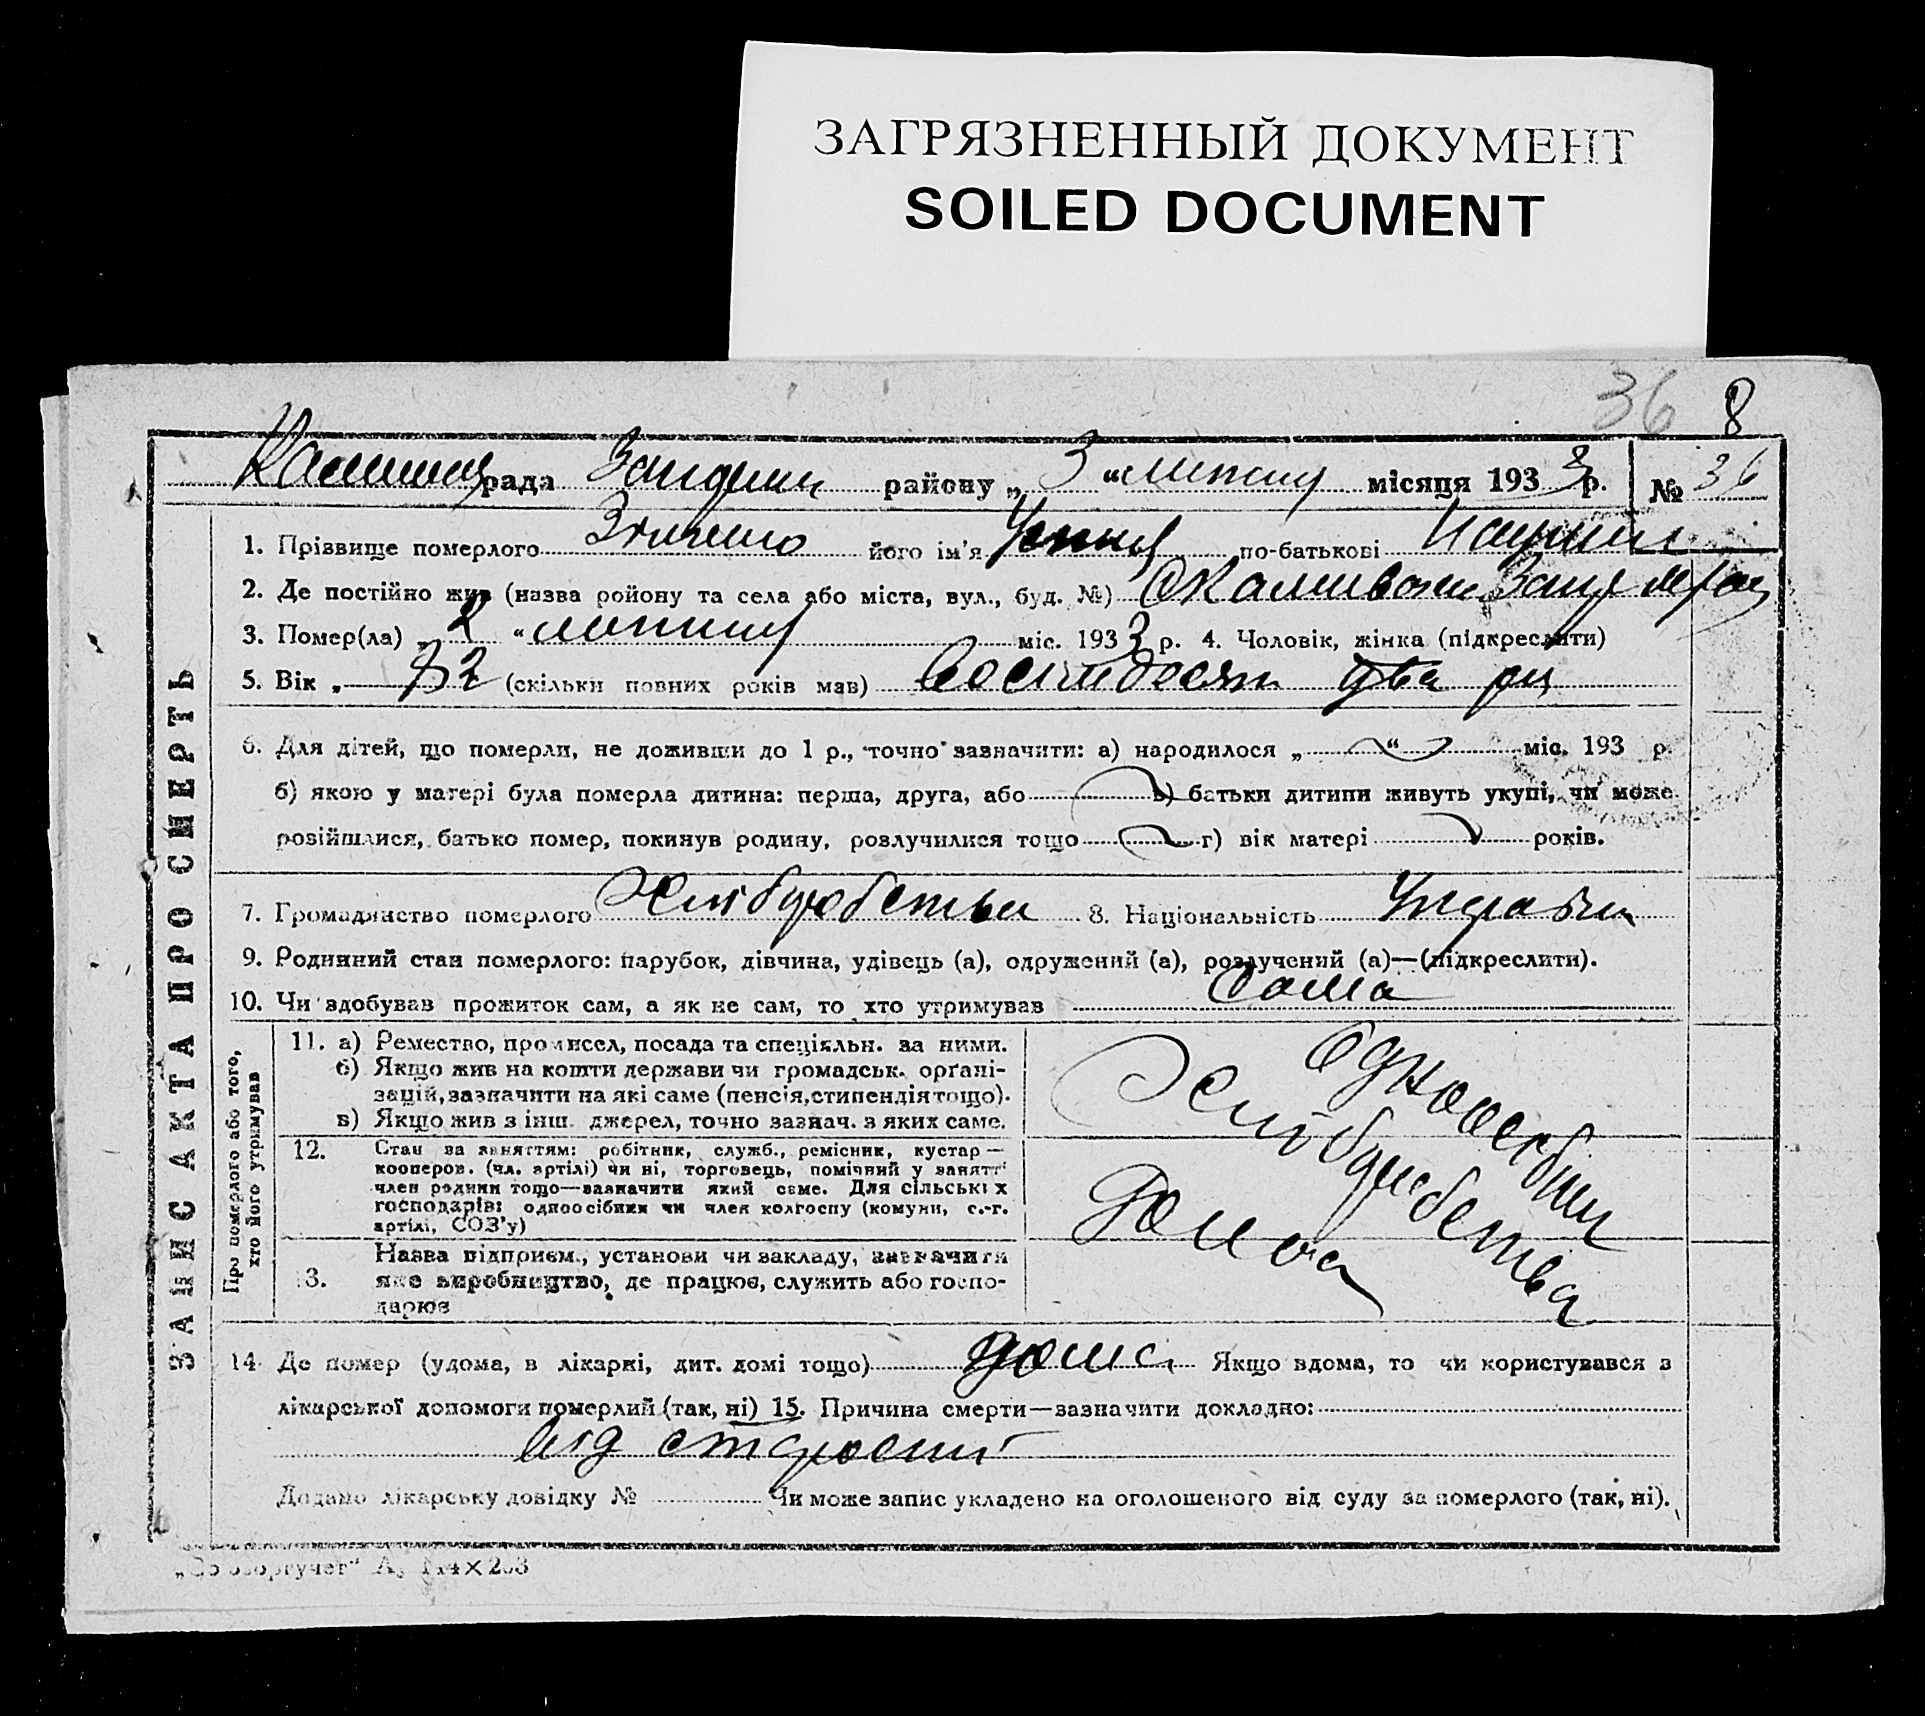 ЗАГРЯЗНЕННЫЙ ДОКУМЕНТ
SOILED DOCUMENT
36 8
рада району „ 3 “ липня місяця 1933 р. № 36
1. Прізвище померлого його ім'я по-батькові
2. Де постійно жив (назва ройону та села або міста, вул., буд. №)
3. Помер(ла) „ 2 “ липня міс. 1933 р. 4. Чоловік, жінка (підкреслити)
5. Вік „ 82 (скільки повних років мав) восімдесят два р
6. Для дітей, що померли, не доживши до 1 р., точно зазначити: а) народилося „ “ міс. 193 р.
б) якою у матері була померла дитина: перша, друга, або в) батьки дитини живуть укупі, чи може
розійшлися, батько помер, покинув родину, розлучилися тощо г) вік матері років.
7. Громадянство померлого Хліборобства 8. Національність
9. Родинний стан померлого: парубок, дівчина, удівець (а), одружений (а), розлучений (а)—(підкреслити).
10. Чи здобував прожиток сам, а як не сам, то хто утримував сама
ЗАПИС АКТА ПРО СМЕРТЬ
Про померлого або того, хто його утримував
11. а) Ремество, промисел, посада та спеціяльн. за ними.
б) Якщо жив на кошти держави чи громадськ. орґані-
зацій, зазначити на які саме (пенсія, стипендія тощо).
в) Якщо жив з інш. джерел, точно зазнач. з яких саме.
12. Стан за заняттям: робітник, служб., ремісник, кустар—
кооперов. (чл. артілі) чи ні, торговець, помічний у занятті
член родини тощо—зазначити який саме. Для сільських
господарів: одноосібник чи член колгоспу (комуни, с.-г.
артілі, СОЗ'у)
13. Назва підприєм., установи чи закладу, зазначити
яке виробництво, де працює, служить або госпо-
дарює
Одноосібник
Хліборобства
Дома
14. Де помер (удома, в лікарні, дит. домі тощо) дома Якщо вдома, то чи користувався з
лікарської допомоги померлий (так, ні) 15. Причина смерти—зазначити докладно:
від старости
Додано лікарську довідку № Чи може запис укладено на оголошеного від суду за померлого (так, ні).